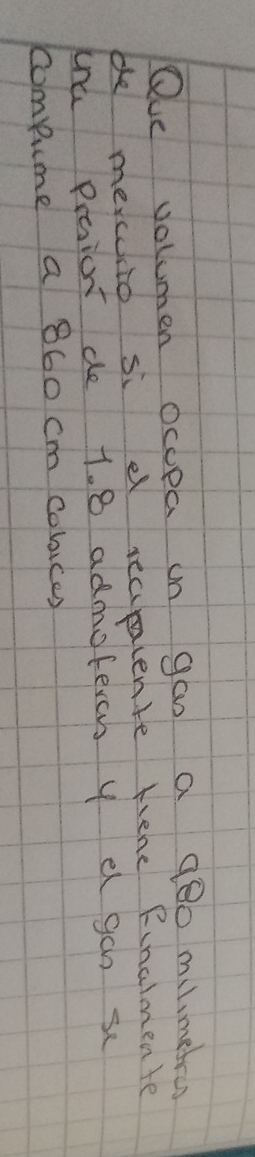 Que volumen ocupa un gas a 980 milimetros
de mercurio si el recipiente tiene finalmente
una presion de 1.8 admoferas y el gas se
comprime a 860 cm cubicos